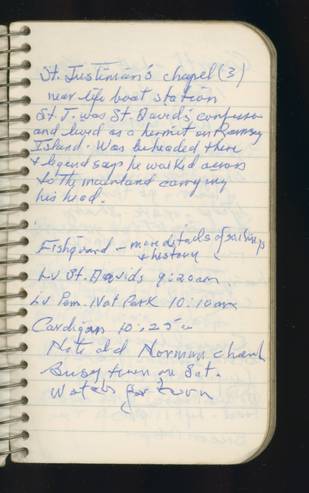 St. Justinian's chapel (3)
near life boat station
St J. was St. David's confessor
and lived as a hermit on Ramsey
Island. Was beheaded there
& legend says he walked across
to the mainland carrying
his head.
Fishguard - more details of
& history
Lv St. Davids 9:20 am
Lv Pem. Nat Park 10:10 am
Cardigan 10:25 a
Note old Norman church
Busy town on Sat.
Watch for town